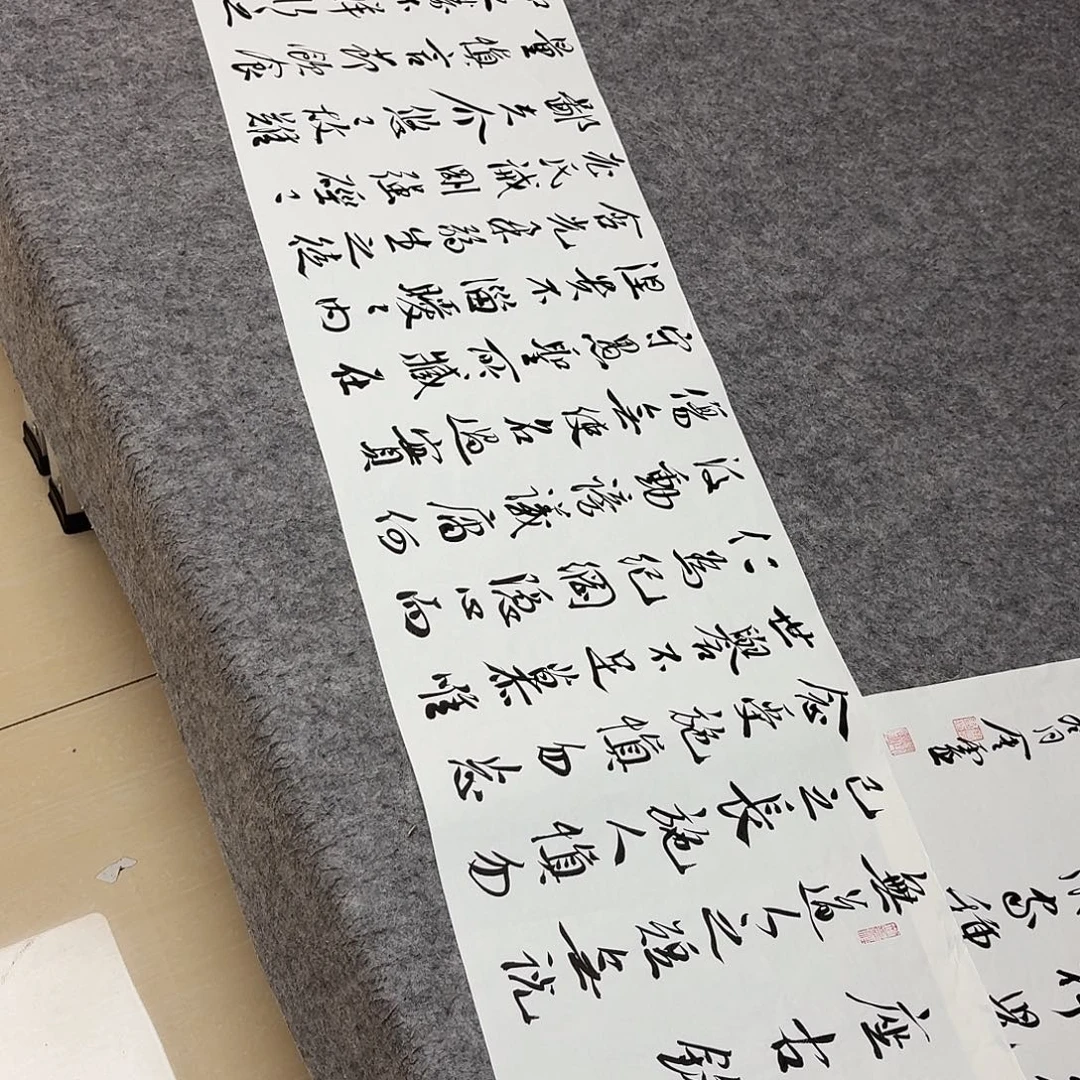 座右銘
無道人之短無說
己之長施人慎勿
念受施慎勿忘
世譽不足慕唯
仁為紀綱隱心而
後動謗議庸何
傷無使名過實
守愚聖所臧在
涅貴不淄曖〻內
含光柔弱生之徒
老氏誡剛強硜〻
鄙夫介悠〻故難
量慎言節飲食
勝不祥行之